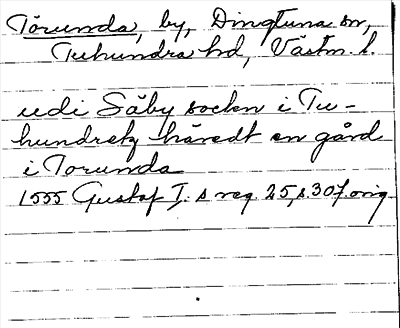 Torunda, by, Dingtuna sn,
Tuhundra hd, Västm. l.
udi Säby socken i Tu-
hundretz häredt en gård
i Torunda
1555 Gustaf I:s reg. 25, s. 307. orig